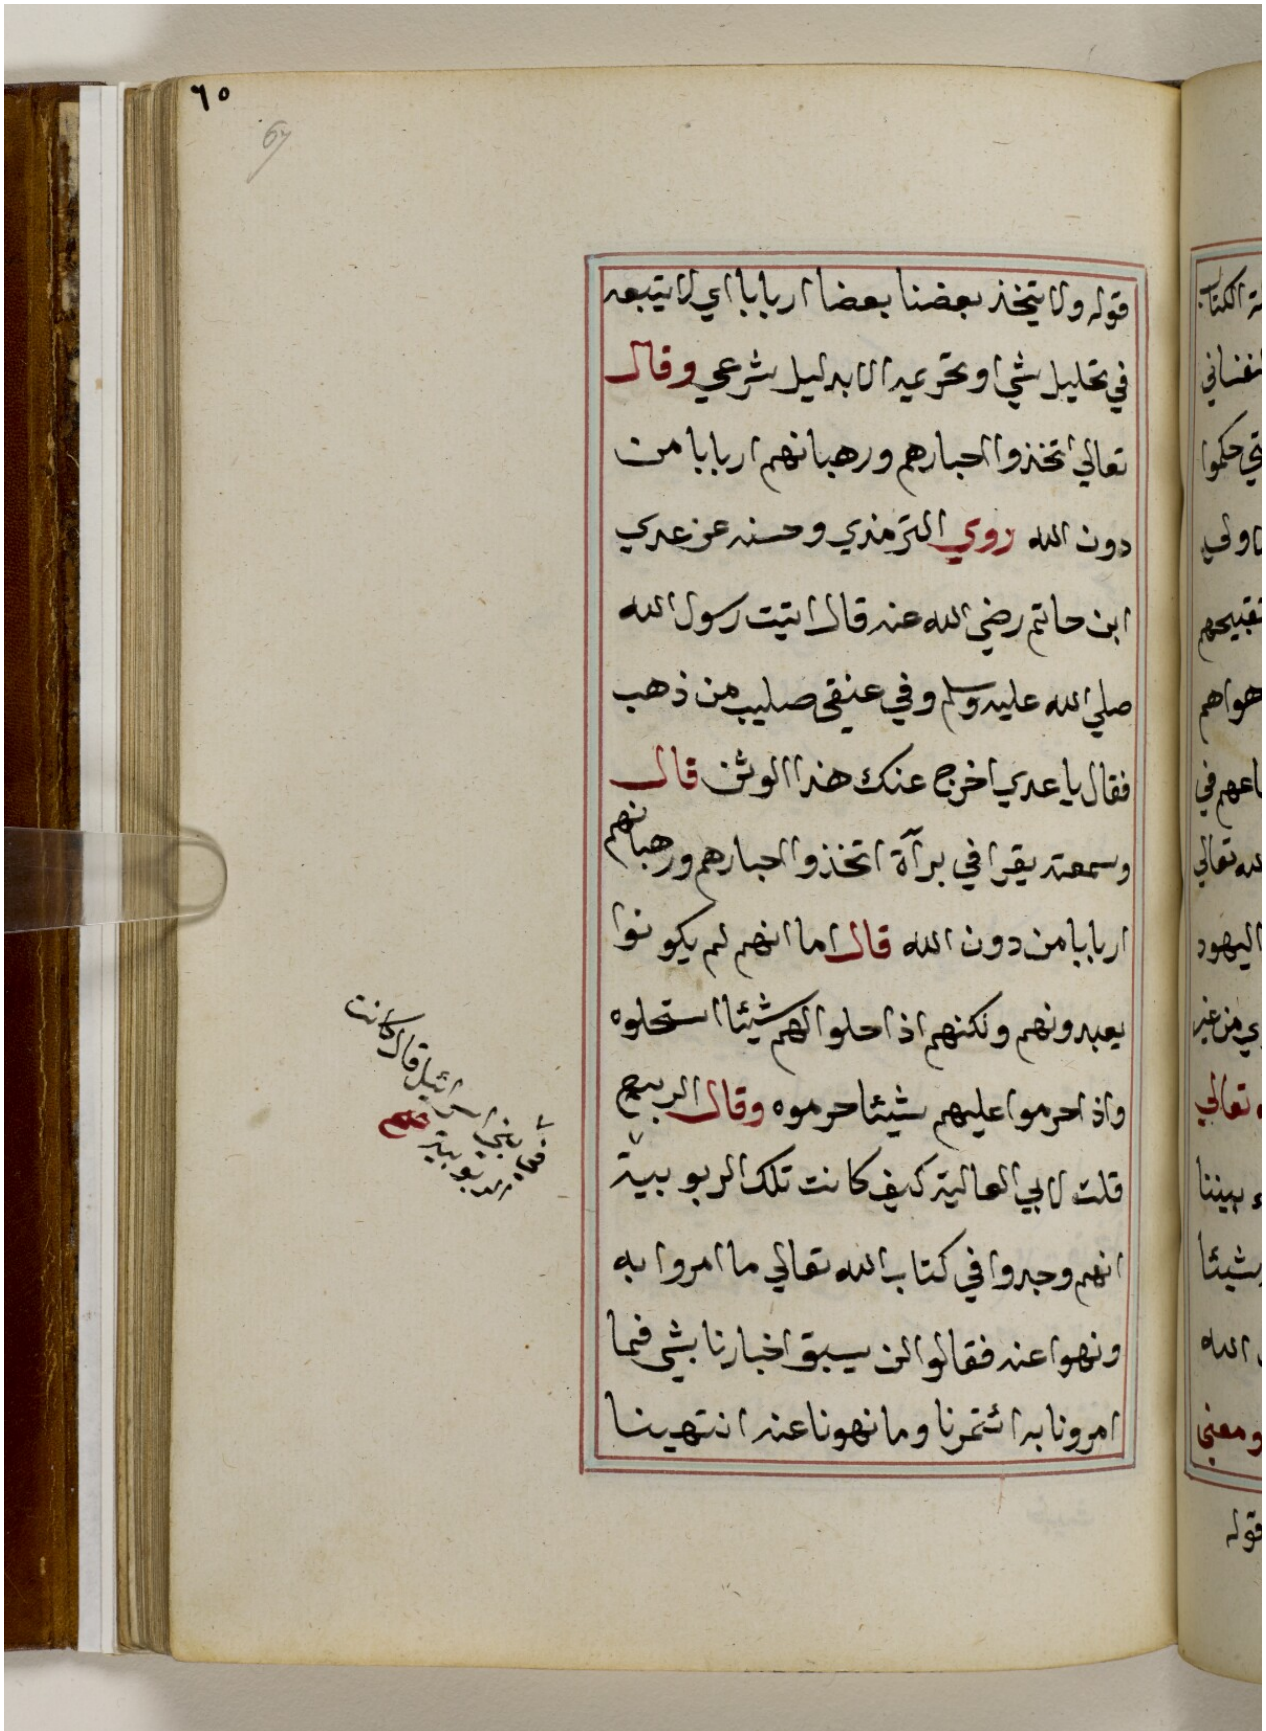 ٦٥
67
قوله ولا يتخذ بعضنا بعضا اربابا اي لا يتبعه
في تحليل شي او تحريمه الا بدليل شرعي وقال
تعالي اتخذوا احبارهم ورهبانهم اربابا من
دون الله روي الترمذي وحسنه عن عدي
ابن حاتم رضي الله عنه قال اتيت رسول الله
صلي الله عليه وسلم وفي عنقي صليب من ذهب
فقال يا عدي اخرج عنك هذا الوثن قال
وسمعته يقرا في برآة اتخذوا احبارهم ورهبانهم
اربابا من دون الله قال اما انهم لم يكونوا
يعبدونهم ولكنهم اذا احلوا لهم شيئا استحلوه
واذا حرموا عليهم شيئا حرموه وقال الربيع
قلت لابي العالية كيف كانت تلك الربوبية
انهم وجدوا في كتاب الله تعالي ما امروا به
ونهوا عنه فقالوا لن يسبق احبارنا بشي فما
امرونا به ائتمرنا وما نهونا عنه انتهينا
في بني اسرائيل قال كانت
الربوبية
لة الكتاب
حكموا
تقبيحهم
اليهود
تعالي
بيننا
شيئا
الله
ومعني
قوله